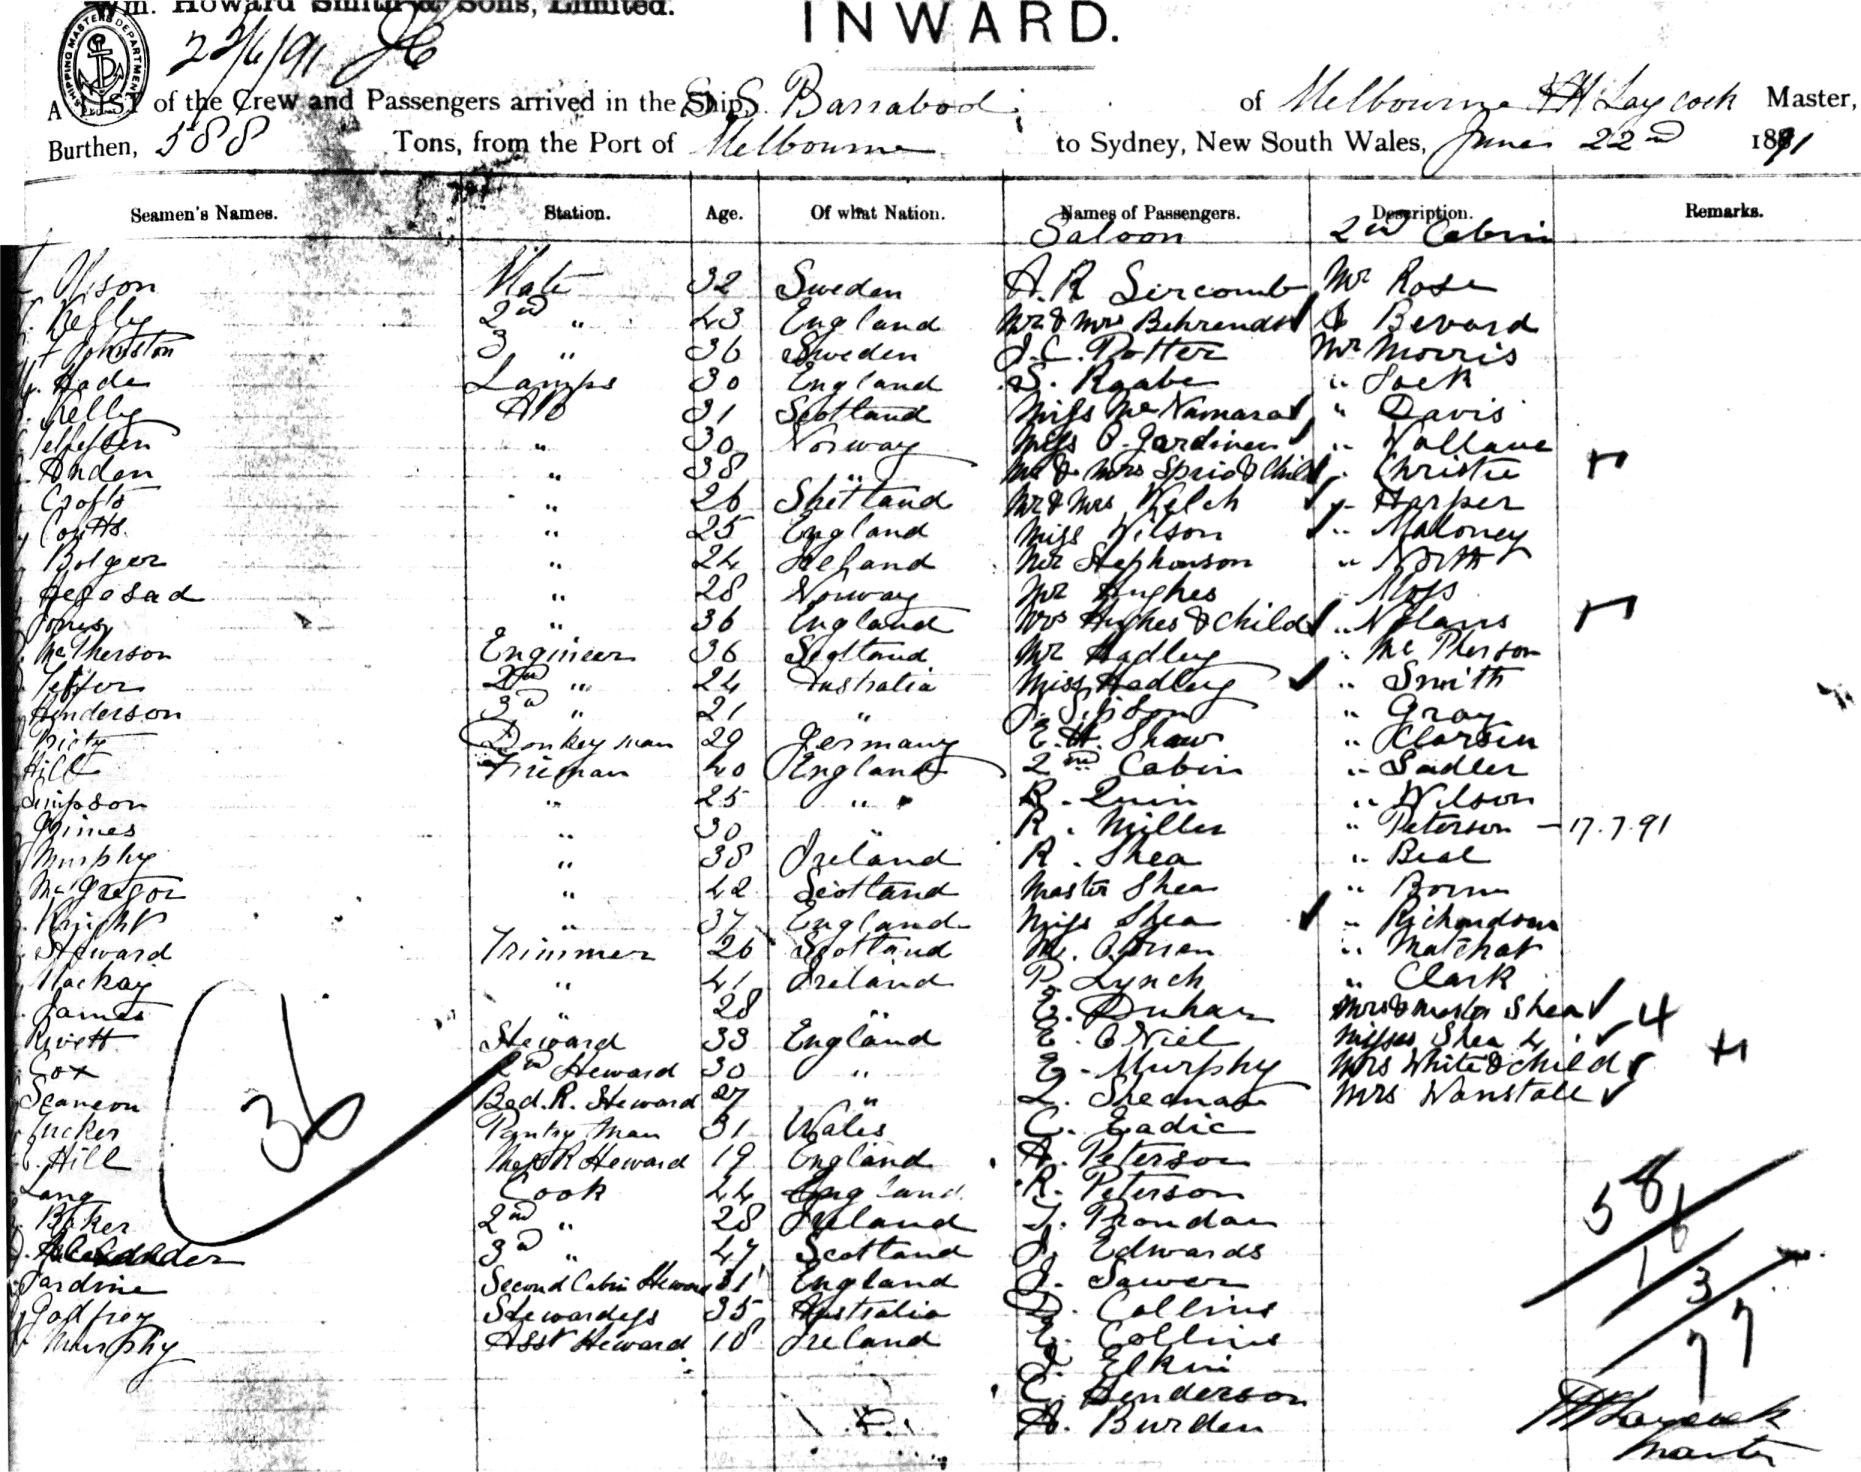 Wm. Howard Smith & Sons, Limited.
INWARD.
SHIPPING MASTERS DEPARTMENT
22/6/91
A LIST of the Crew and Passengers arrived in the Ship S.S. Barrabool of Melbourne Laycock Master,
Burthen, 588 Tons, from the Port of Melbourne to Sydney, New South Wales, June 22nd 1891
Seamen's Names. Station. Age. Of what Nation. Names of Passengers. Description. Remarks.
Saloon 2nd Cabin
Olson Mate 32 Sweden A. R Sircomb Mr Rose
Kelly 2nd " 43 England Mr & Mrs Behrends Bevard
Johnston 3 " 36 Sweden J. C. Potter Mr Morris
Hade Lamps 30 England S. Raabe " Jack
Kelly AB 31 Scotland Miss McNamara " Davis
" 30 Norway Miss O. Gardiner " Wallace
Anden " 38 " Mr & Mrs Sprio & Child " Christie
Crofts " 26 Shetland Mr & Mrs Welch " Harper
Coutts " 25 England Miss Wilson " Maloney
Bolger " 24 Ireland Mr Stephenson " North
" 28 Norway Mr Hughes Moss
Jones " 36 England Mrs Hughes & Child " Nolans
McPherson Engineer 36 Scotland Mr Hadley " McPherson
2nd " 24 Australia Miss Hadley " Smith
Henderson 3d " 21 " J. Gray
Donkeyman 29 Germany E. H. Shaw " Clarsen
Hill Fireman 40 England 2nd Cabin " Sadler
Simpson " 25 " R. Quin " Wilson
Grimes " 30 " R. Miller " Peterson - 17.7.91
Murphy " 38 Ireland R. Shea " Beal
McGregor " 42 Scotland Master Shea "
Knight " 37 England Miss Shea " Richardson
Steward Trimmer 26 Scotland M. " Matchat
Mackay " 41 Ireland P. Lynch " Clark
James " 28 " E. Mrs & Master Shea 4
Rivett Steward 33 England E. O Niel Misses Shea
Cox 2nd Steward 30 " E. Murphy Mrs White & child
Bed. R. Steward 27 "  Mrs Wanstall
Tucker Pantry Man 31 Wales C. Eadie
Hill Mess R Steward 19 England A. Peterson
Lang Cook 44 England R. Peterson
Baker 2nd " 28 Ireland
3d " 47 Scotland J. Edwards
Jardine Second Cabin Steward 31 England J. Sawer
Godfrey Stewardess 35 Australia D. Collins
Murphy Asst Steward 18 Ireland E. Collins
J. Elkin
C. Henderson
A. Burden
36
58
16
13
77
Laycock
Master